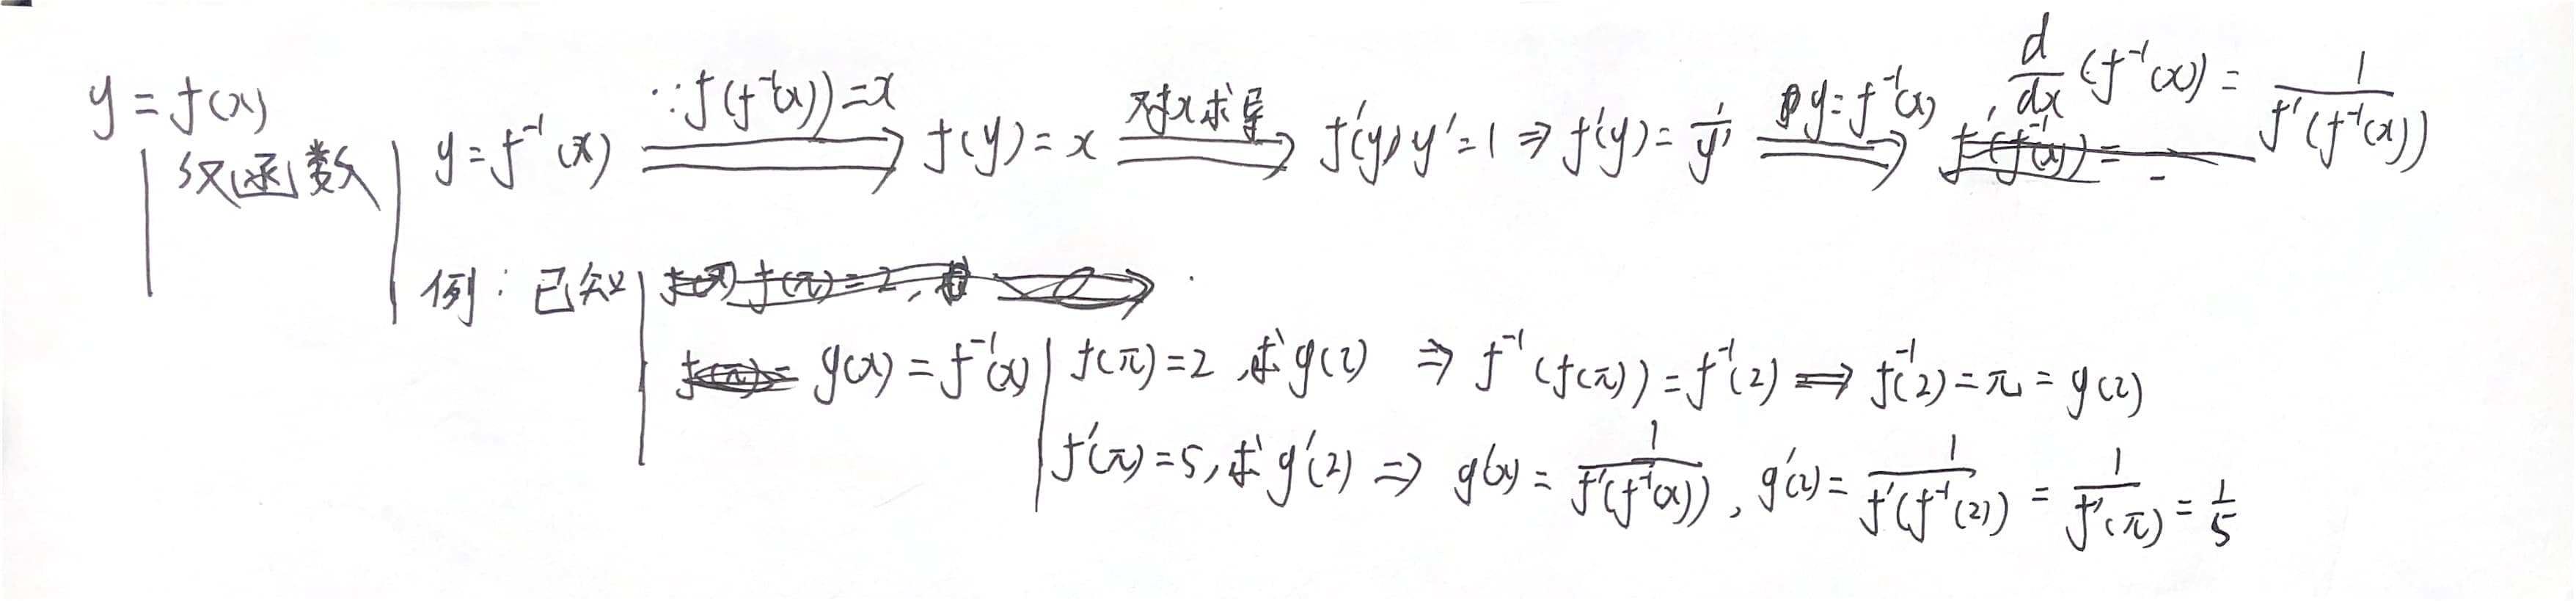 y = f(x)
反函数
y = f⁻¹(x) ∵ f(f⁻¹(x)) = x ⟹ f(y) = x 对x求导 ⟹ f'(y) y' = 1 ⇒ f'(y) = 1/y' y = f⁻¹(x) ⟹ d/dx (f⁻¹(x)) = 1/f'(f⁻¹(x))
例: 已知
g(x) = f⁻¹(x) f(π) = 2, 求 g(2) ⇒ f⁻¹(f(π)) = f⁻¹(2) ⟹ f⁻¹(2) = π = g(2)
f'(π) = 5, 求 g'(2) ⇒ g'(x) = 1/f'(f⁻¹(x)), g'(2) = 1/f'(f⁻¹(2)) = 1/f'(π) = 1/5